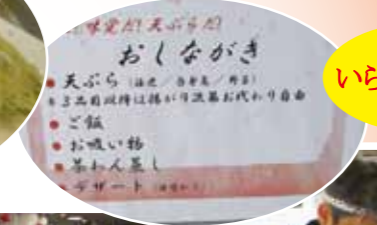 味覚だ!天ぷらだ!
おしながき
● 天ぷら(海老/白身魚/野菜)
※3品目以降は揚がり次第お代わり自由
● ご飯
● お吸い物
● 茶わん蒸し
● デザート
いら